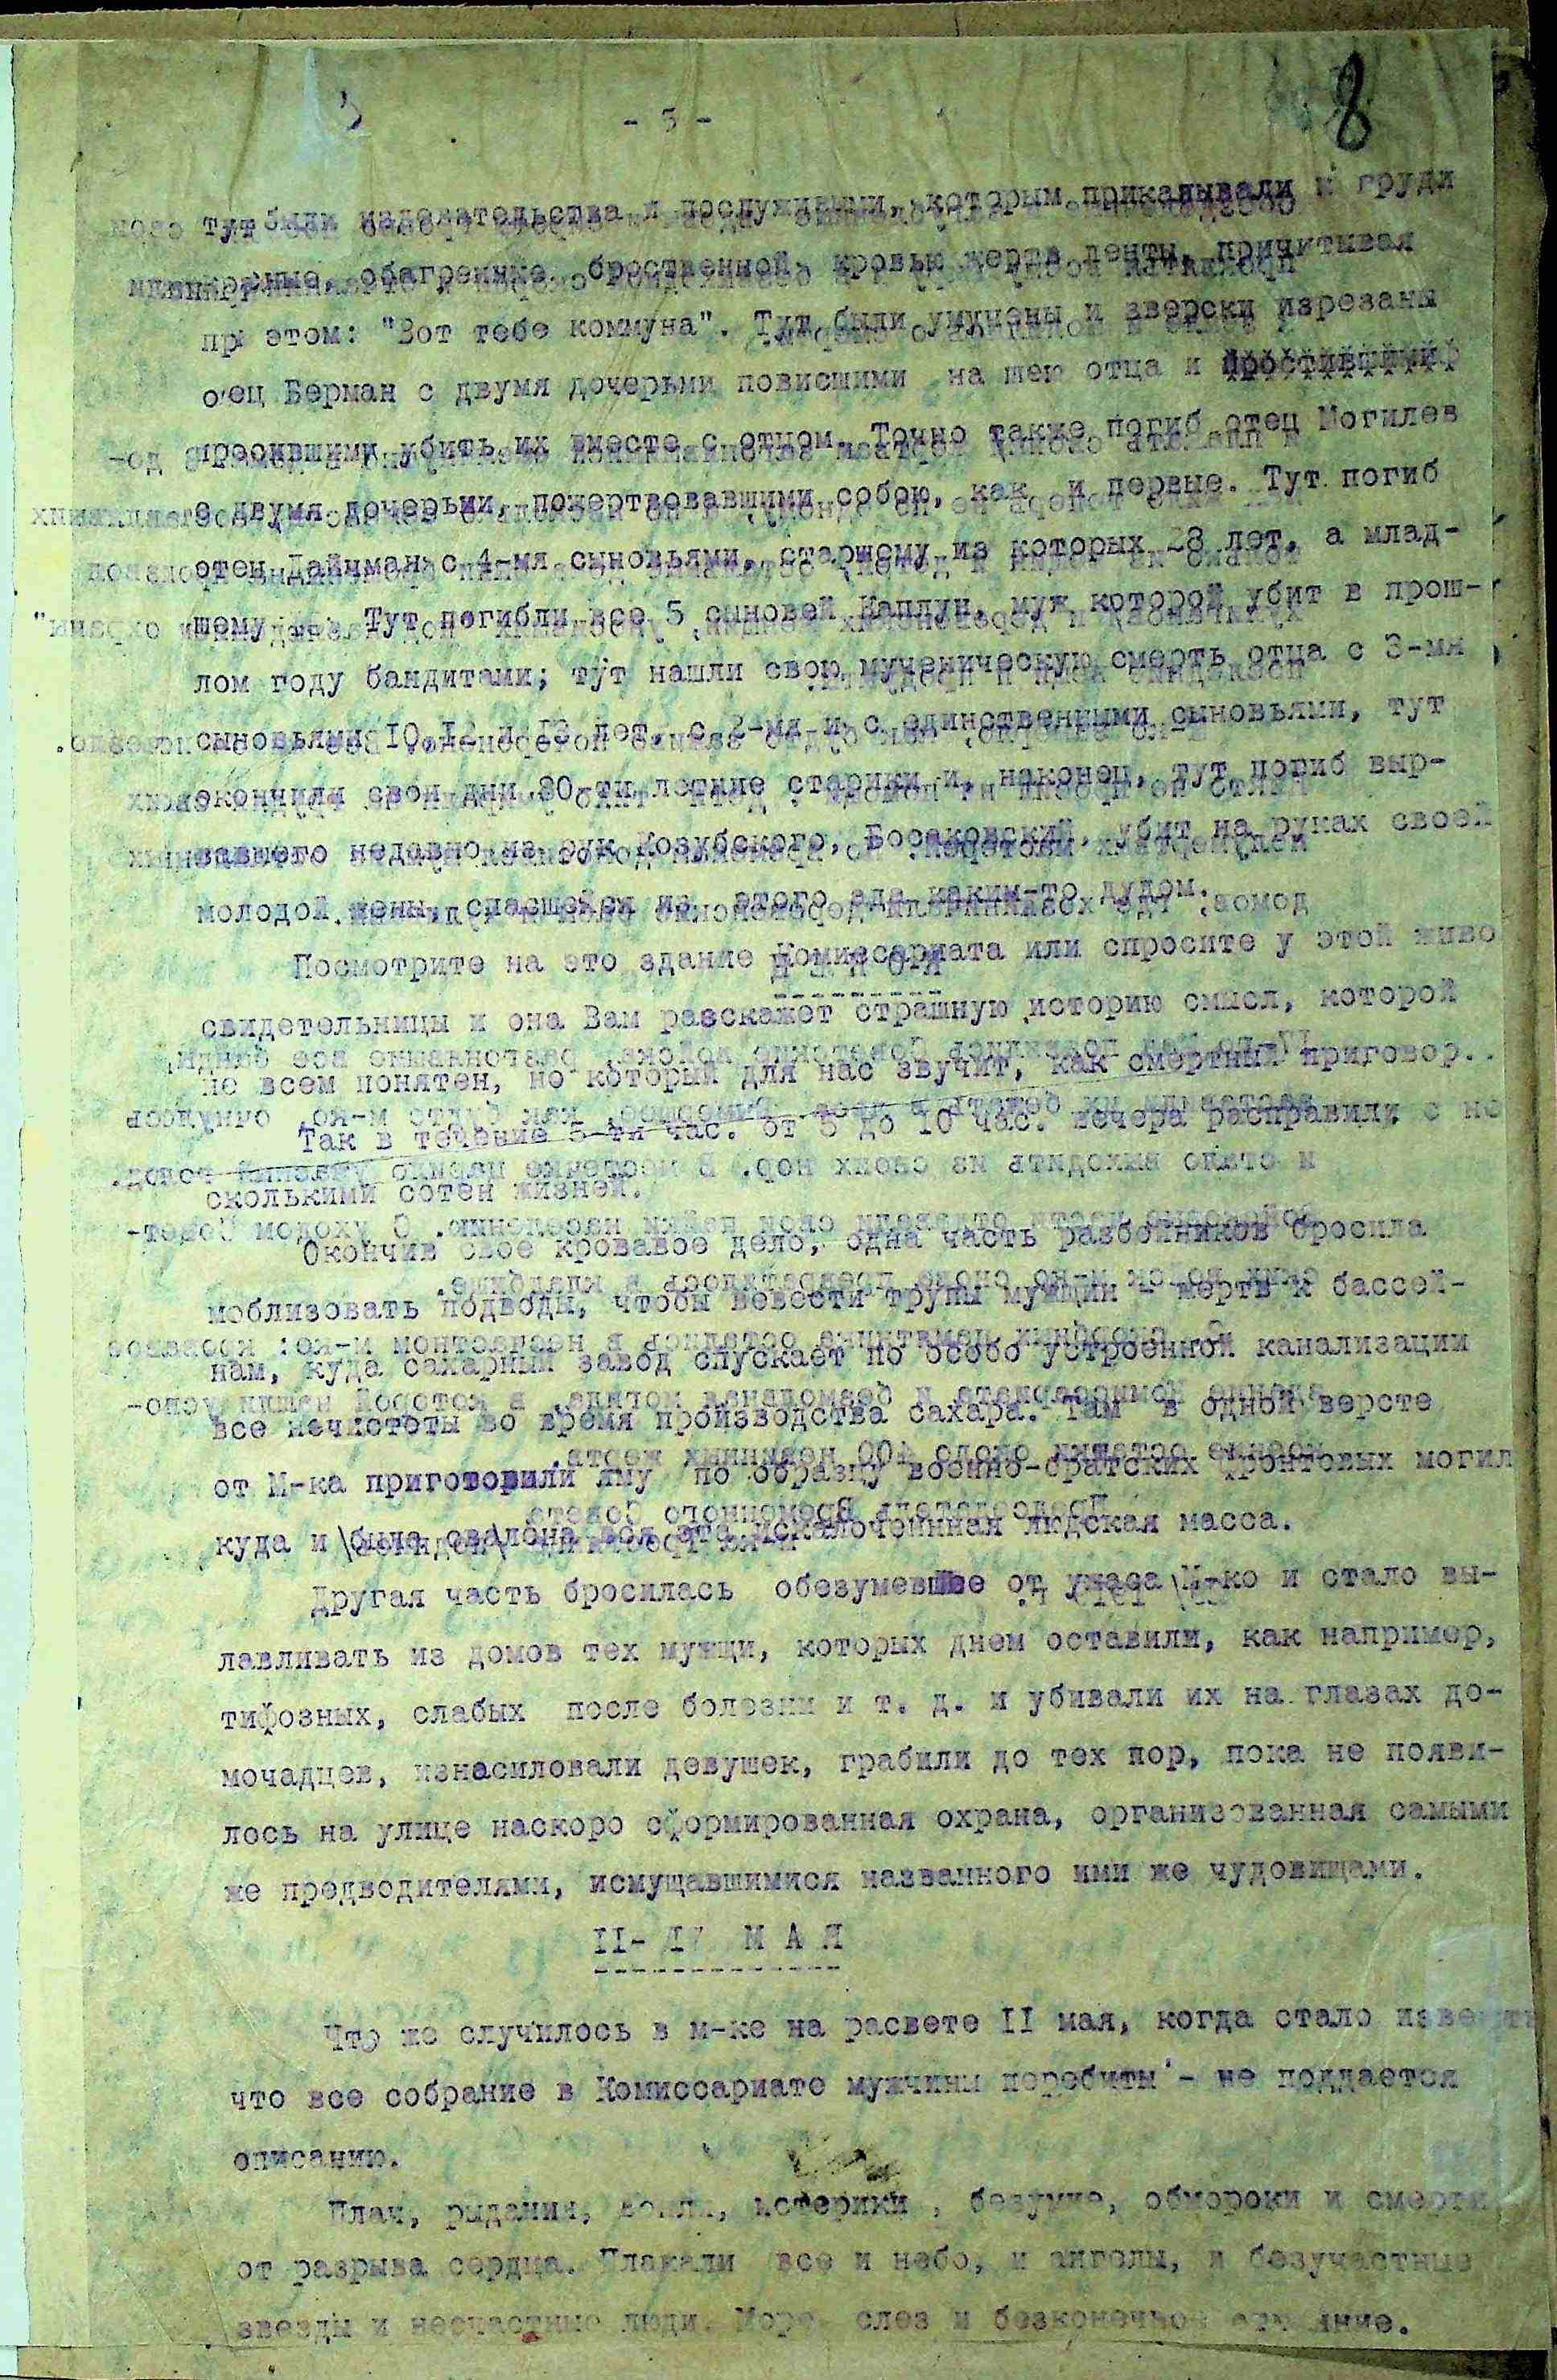 - 3 -
8
тут были издевательства и послужившими, которым прикалывали к груди
красные, обагренные кровью жертв ленты, причитывая
при этом: "Вот тебе коммуна". Тут были умучены и зверски изрезаны
отец Берман с двумя дочерьми повисшими на шею отца и
просившими убить их вместе с отцом. Точно также погиб отец Могилев
с двумя дочерьми, пожертвовавшими собою, как и первые. Тут погиб
отец Дайчман с 4-мя сыновьями, старшему из которых 28 лет, а млад-
шему Тут погибли все 5 сыновей Каплун, муж которой убит в прош-
лом году бандитами; тут нашли свою мученическую смерть отца с 3-мя
сыновьями 10, 12 и 13 лет, с 2-мя и с единственными сыновьями, тут
экончили свои дни 80-ти летние старики и, наконец, тут погиб выр-
вавшего недавно из рук Козубского, Босаковский, убит на руках своей
молодой жены, спасшейся из этого ада каким-то чудом.
Посмотрите на это здание Комиссариата или спросите у этой живо
свидетельницы и она Вам разскажет страшную историю смысл, которой
не всем понятен, но который для нас звучит, как смертный приговор..
Так в течение 5-ти час. от 5 до 10 час. вечера расправили с не
сколькими сотен жизней.
Окончив свое кровавое дело, одна часть разбойников бросила
моблизовать подводы, чтобы вевести трупы мужщин - жертв к бассей-
нам, куда сахарный завод спускает по особо устроенной канализации
все нечистоты во время производства сахара. Там в одной версте
от М-ка приготовили яму по образцу военно-братских фронтовых могил
куда и была свалена вся эта искалоченнная людская масса.
Другая часть бросилась обезумевшее от ужаса М-ко и стало вы-
лавливать из домов тех мужщи, которых днем оставили, как например,
тифозных, слабых после болезни и т. д. и убивали их на глазах до-
мочадцев, изнасиловали девушек, грабили до тех пор, пока не появи-
лось на улице наскоро сформированная охрана, организованная самыми
же предводителями, исмущавшимися названного ими же чудовищами.
II- IV М А Я
Что же случилось в м-ке на расвете II мая, когда стало известн
что все собрание в Комиссариате мужчины перебиты - не поддается
описанию.
Плач, рыдания, вопли, истерики, безумие, обмороки и смерти
от разрыва сердца. Плакали все и небо, и анголы, и безучастные
звезды и несчастные люди. Море слез и безконечное